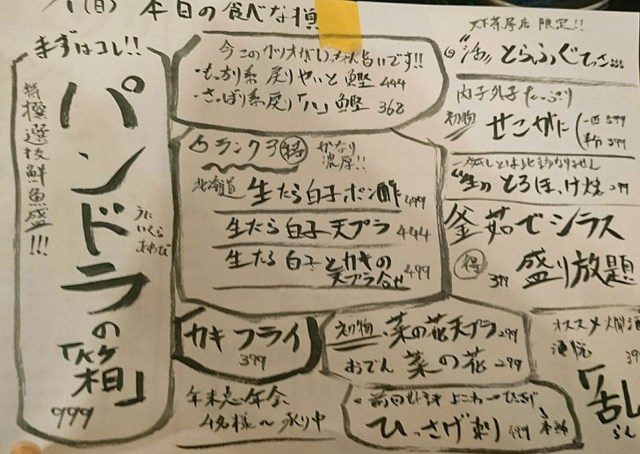 (日) 本日の食べな損
まずはコレ!!
特撰選抜鮮魚盛!!!
パンドラの「箱」
うに
いくら
あわび
999
今このカツオがめっちゃ旨いです!!
・もっちり系 戻りやいと鰹 444
・さっぱり系戻り「八」鰹 368
ランク3 得 かなり濃厚!!
北海道 生たら白子ポン酢 499
生たら白子天プラ 444
生たら白子とカキの天プラ合せ 499
カキフライ
399
初物 菜の花天プラ 299
おでん 菜の花 299
年末忘年会
4名様〜承り中
ひっさげ刺 499
限定!!
"活" とらふぐてっさ
内子外子たっぷり
初物 せこがに
"生" とろほっけ焼
釜茹でシラス
得 399 盛り放題
オススメ
「乱
らん